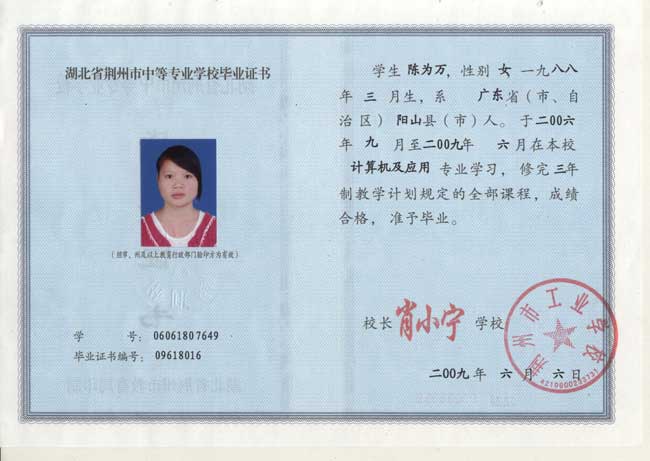 湖北省荆州市中等专业学校毕业证书
(经市、州及以上教育行政部门验印方为有效)
学 号: 06061807649
毕业证书编号: 09618016
学生 陈为万, 性别 女 一九八八
年 三 月生, 系 广东省(市、自
治区) 阳山县(市)人。于二00六
年 九 月至二00九年 六月在本校
计算机及应用 专业学习, 修完三年
制教学计划规定的全部课程, 成绩
合格, 准予毕业。
校长 肖小宁 学校
荆州市工业学校
4210000293731
二00九年 六 月 六日